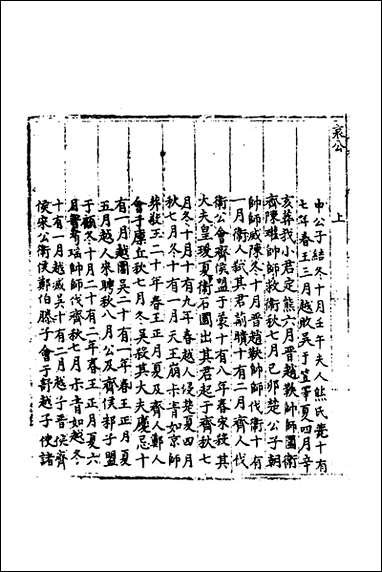 哀公
上
申公子結冬十月壬午夫人熊氏薨十有
七年春王三月越敗吳于笠澤夏四月辛
亥葬我小君定熊六月晉趙鞅帥師圍衛
齊陳瓘帥師救衛秋七月己卯楚公子朝
帥師滅陳冬十月晉趙鞅帥師伐衛十有
一月衛人弒其君蒯聵十有二月齊人伐
衛公會齊侯盟于蒙十有八年春宋殺其
大夫皇瑗夏衛石圃出其君起于齊秋七
月冬十月十有九年春越人侵楚夏四月
秋七月冬十有一月天王崩卡肯如京師
葬敬王二十年春王正月夏及齊人鄭人
會于廩丘秋七月冬吳殺其大夫慶忌十
有一月越圍吳二十有一年春王正月夏
五月越人來聘秋八月公及齊侯邾子盟
于顧冬十月二十有二年春王正月夏六
月晉荀瑤帥師伐齊秋七月卡肯如越冬
十有一月越滅吳十有二月越子晉侯齊
侯宋公衛侯鄭伯滕子會于舒越子使諸